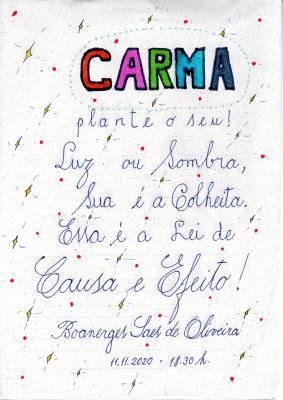 CARMA
plante o seu!
Luz ou Sombra,
Sua é a Colheita.
Essa é a Lei de
Causa e Efeito!
Boanerges Saes de Oliveira
11.11.2020 - 18.30 h.